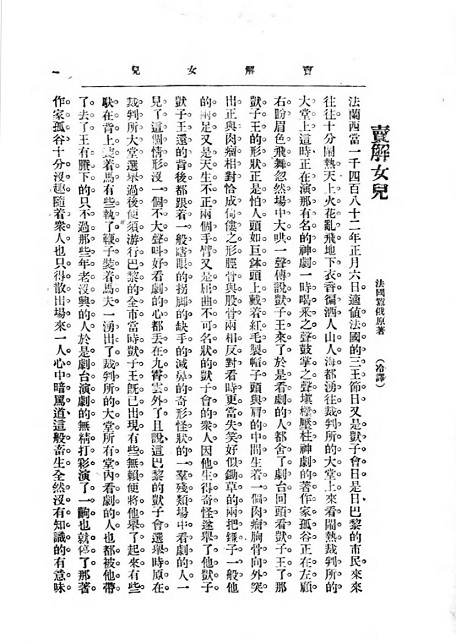 賣解女兒
一
賣解女兒
法國囂俄原著
(冷譯)
法蘭西當一千四百八十二年正月六日適値法國的三王節日又是獃子會日是日巴黎的市民來來
往往十分鬧熱天上火花亂飛地下衣香徧洒人山人海都湧往裁判所的大堂上來看鬧熱裁判所的
大堂上這時正在演那有名的神劇一時喝釆之聲鼓掌之聲塡欒壓柱神劇的著作家孤谷正在左顧
右盼眉色飛舞忽然場中大哄一聲傳說獃子王來了於是看劇的人都舍了劇台回頭看獃子王了那
獃子王的形狀正是怕人頭如巨鉢頭上戴着紅毛製帽子頭與肩的中間生着一個肉瘤胸骨向外突
出正與肉瘤相對恰成佝僂之形脛骨與股骨兩相反對看時更當失笑好似鋤草的兩把鐮子一般他
的兩足又是天生不正兩個手臂又是屈曲不可名狀的獃子會的衆人因他生得奇怪遂舉了他獃子
獃子王還的背後都跟着一般瞎眼的拐脚的缺手的滅鼻的奇形怪狀的一羣殘類場中看劇的人一
見了這個情形沒一個不大聲叫好看劇的心都丟在九霄雲外了且說這巴黎的獃子會選舉時原在
裁判所大堂選舉過後便須游行巴黎的全市當時獃子王既已出現有些無賴便將他舉了起來有些
馱在背上裝着馬有些執了鞭子裝着馬夫一湧出了裁判所的大堂所有堂內看劇的人也都被他帶
了去了王有賸下的只不過那些年老沒興的人於是劇台演劇的無精打彩演了一齣也就停了那著
作家孤谷十分沒趣隨着衆人也只得散出場來一人心中暗罵道這般畜生全然沒有知識的有意昧